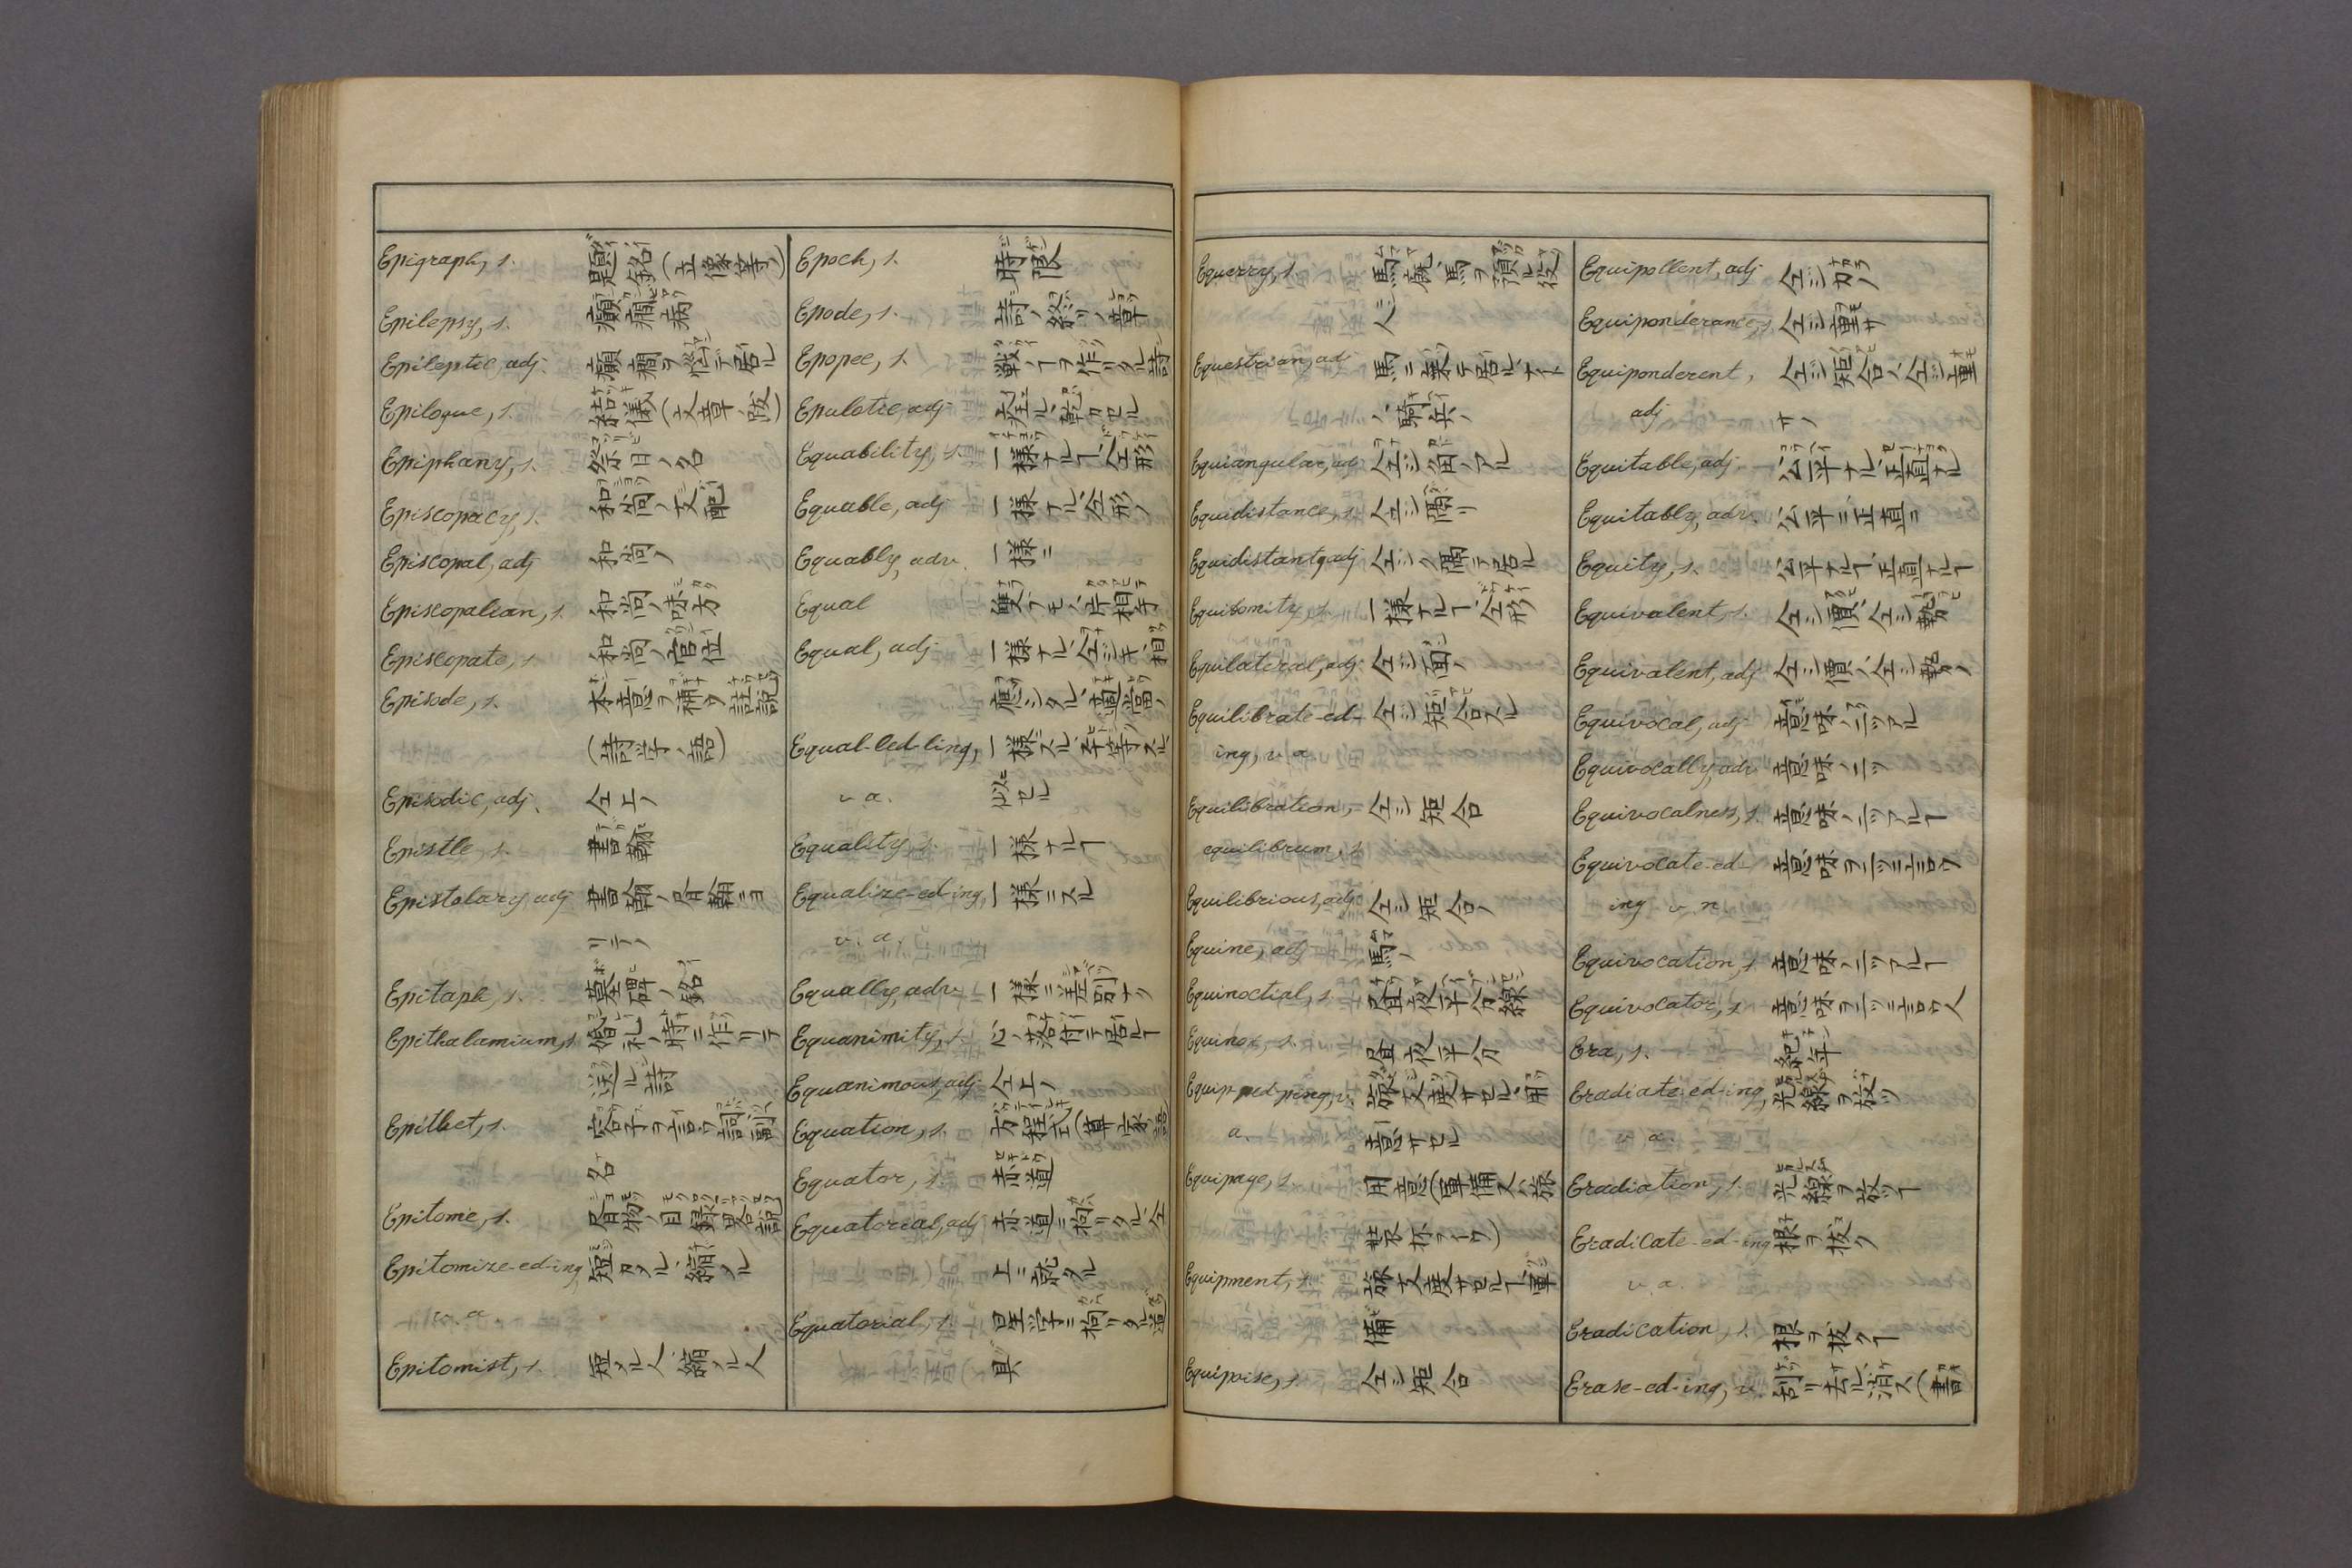 Epigraph, s. 題銘(立像等ノ)
Epilepsy, s. 癲癇病
Epileptic, adj. 癲癇ヲ患テ居ル
Epilogue, s. 結儀(文章ノ段)
Epiphany, s. 祭日ノ名
Episcopacy, s. 和尚ノ支配
Episcopal, adj 和尚ノ
Episcopalian, s. 和尚ノ味方
Episcopate, s. 和尚ノ官位
Episode, s. 本意ヲ補フ註説
(詩学ノ語)
Episodic, adj. 仝上ノ
Epistle, s. 書翰
Epistolary, adj 書翰ノ
Epitaph, s. 墓碑ノ銘
Epithalamium, s. 婚礼ノ時ニ作リテ
送ル詩
Epithet, s.
名
Epitome, s.
Epitomize-ed-ing 短クスル、縮ル
v. a.
Epitomist, s. 短ル人、縮ル人
Epoch, s. 時限
Epode, s. 詩ノ終リノ章
Epopee, s. 戦ノヿヲ作リタル詩
Epulotic, adj
Equability, s. 一様ナルヿ、仝形
Equable, adj 一様ナル、仝形ノ
Equably, adv. 一様ニ
Equal
Equal, adj 一様ナル、仝ジキ、相
應シタル、適當ノ
Equal-led-ling, 一様ニスル、平等ニスル
v a. 似セル
Equality, s. 一様ナルヿ
Equalize-ed-ing, 一様ニスル
v. a.
Equally, adv. 一様ニ、差別ナク
Equanimity, s. 心ノ落付テ居ルヿ
Equanimous, adj 仝上ノ
Equation, s. 方程式(算家ノ語
Equator, s. 赤道
Equatorial, adj 赤道ニ拘リタル、仝
上ニ就タル
Equatorial, s. 星学ニ拘リタル道
具
Equerry, s. 馬廐、馬ヲ預ル役
人
Equestrian, adj 馬ニ乗テ居ル、ナイト
ノ、騎兵ノ
Equiangular, adj 仝ジ角ノアル
Equidistance, s. 仝ジ隔リ
Equidistantgadj 仝ジク隔テ居ル
Equiformity, s. 一様ナルヿ、仝形
Equilateral, adj. 仝ジ面ノ
Equilibrate-ed- 仝ジ矩合スル
ing, v a
Equilibration, 仝ジ矩合
equilibrum, s
Equilibrious, adj 仝ジ矩合ノ
Equine, adj 馬ノ
Equinoctial, s. 昼夜平分線
Equinox, s. 昼夜平分
Equip-ped-ping, v. 旅支度サセル、用
a. 意サセル
Equipage, s. 用意(軍備又ハ旅
装杯ヲ云フ)
Equipment, s. 旅支度サセルヿ、軍
備
Equipoise, s. 仝ジ矩合
Equipollent, adj 仝ジ力ノ
Equiponderance, s. 仝ジ重サ
Equiponderent, 仝ジ矩合ノ、仝ジ重
adj サノ
Equitable, adj. 公平ナル、正直ナル
Equitably, adv. 公平ニ、正直ニ
Equity, s. 公平ナルヿ、正直ナルヿ
Equivalent, s. 仝ジ價、仝ジ勢
Equivalent, adj 仝ジ價ノ、仝ジ勢ノ
Equivocal, adj 意味ノ二ツアル
Equivocally, adv 意味ノ二ツ
Equivocalness, s. 意味ノ二ツアルヿ
Equivocate-ed- 意味ヲ二ツニ言フ
ing v n
Equivocation, s 意味ノ二ツアルヿ
Equivocator, s 意味ヲ二ツニ言フ人
Era, s. 紀年
Eradiate-ed-ing, 光線ヲ放ツ
v a.
Eradiation, s. 光線ヲ放ツヿ
Eradicate-ed-ing 根ヲ抜ク
v. a.
Eradication, s. 根ヲ抜クヿ
Erase-ed-ing, v. 刮リ去ル、消ス(書